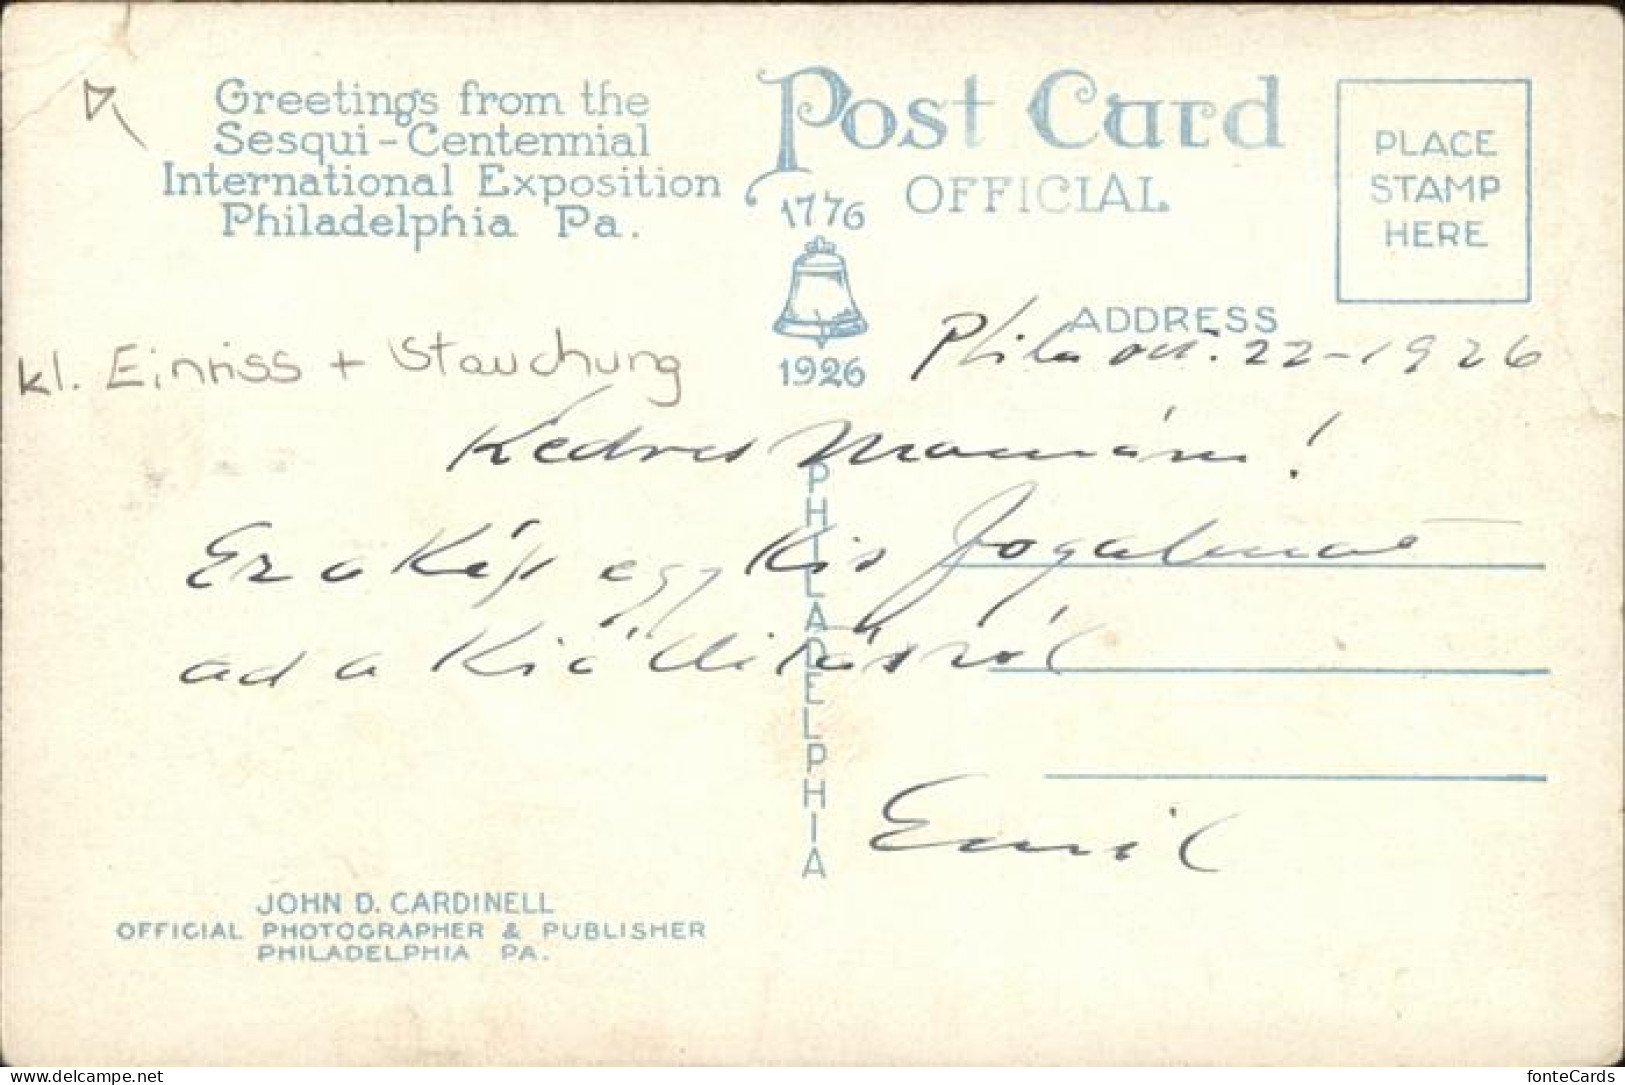 Greetings from the
Sesqui-Centennial
International Exposition
Philadelphia Pa.
Post Card
OFFICIAL
1776
1926
PLACE
STAMP
HERE
ADDRESS
kl. Einriss + Stauchung
Phila Oct. 22-1926
Kedves Mamám!
Ez a Kép egy Kis fogalmat
ad a Kiállitásról
Emil
PHILADELPHIA
JOHN D. CARDINELL
OFFICIAL PHOTOGRAPHER & PUBLISHER
PHILADELPHIA PA.
www.delcampe.net
fonteCards